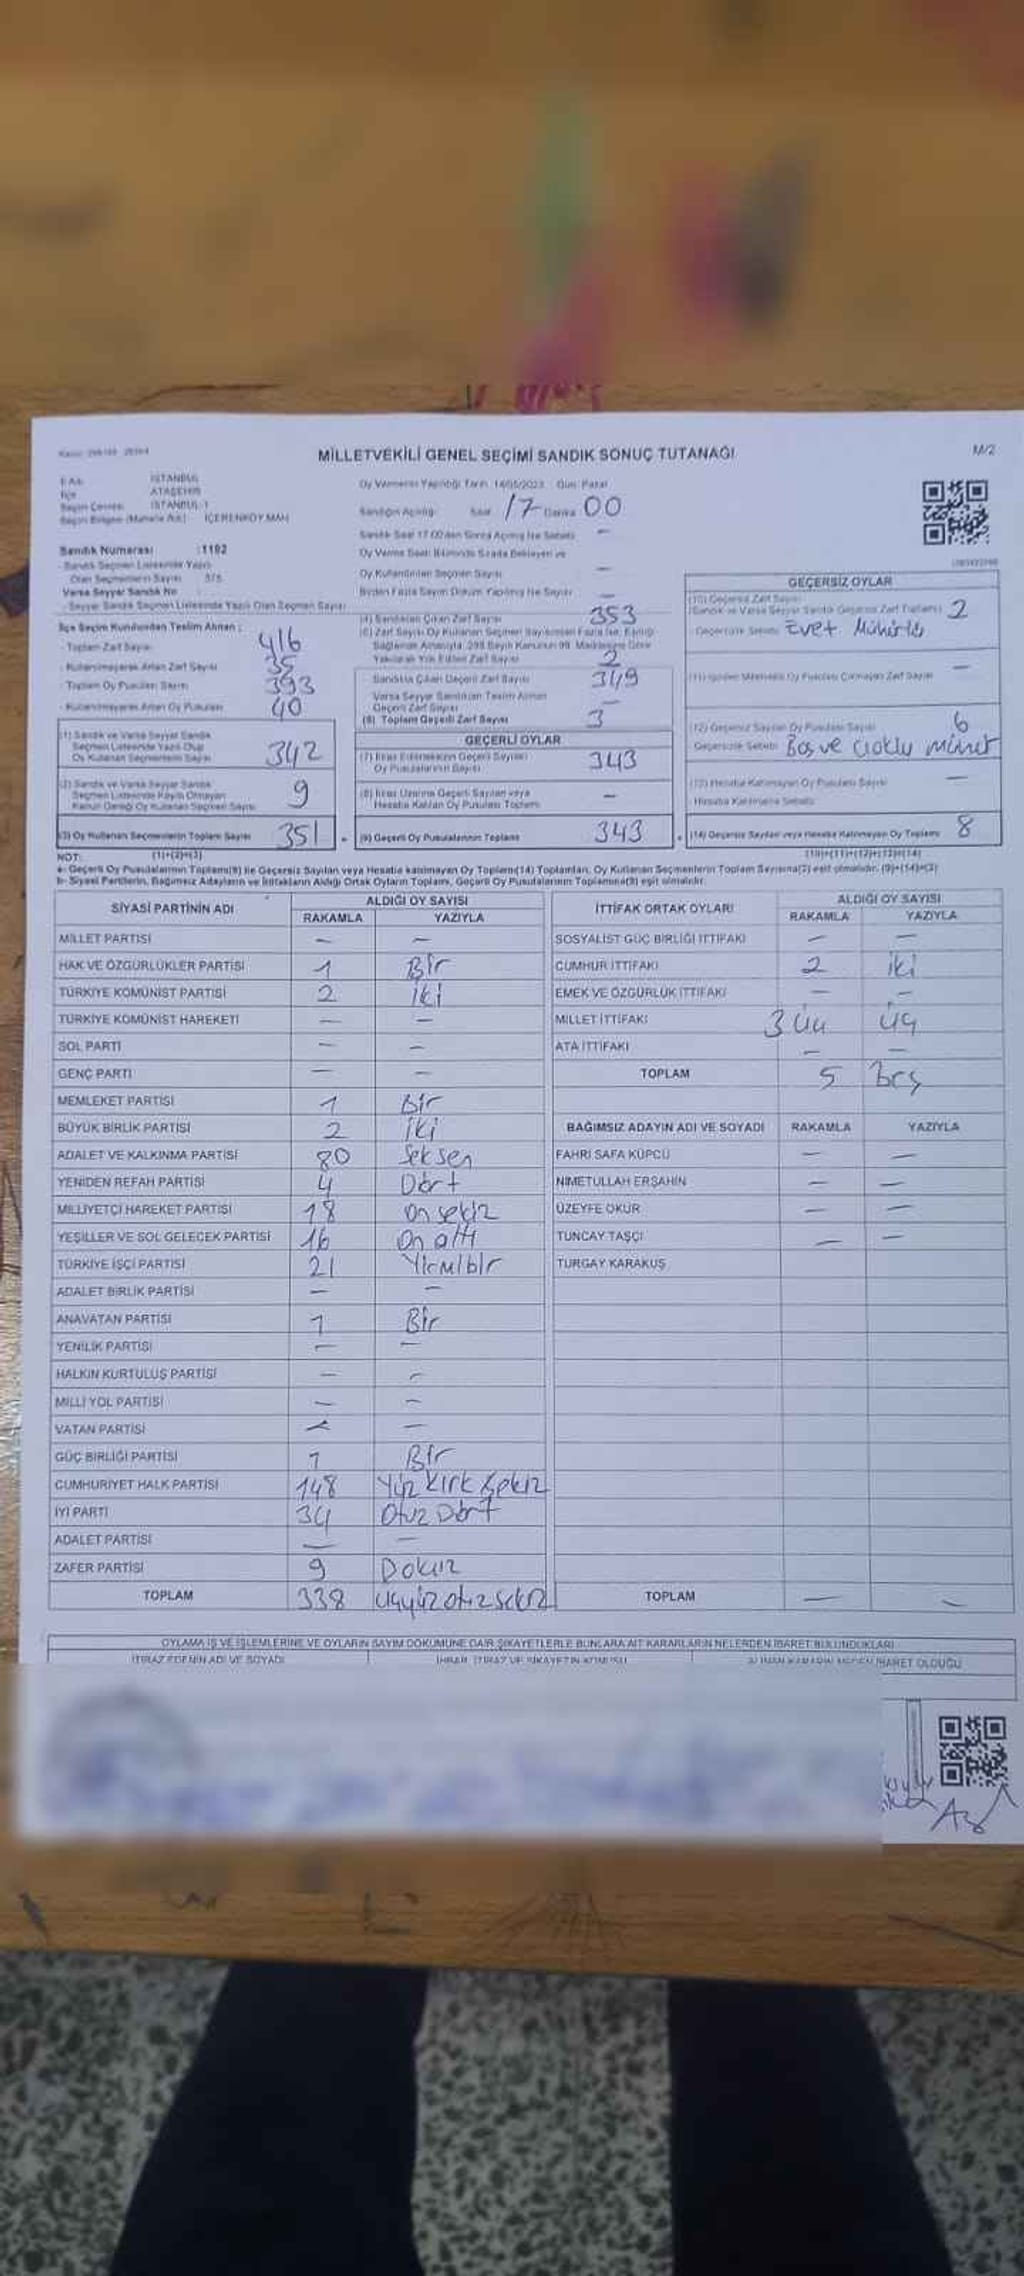 MİLLETVEKİLİ GENEL SEÇİMİ SANDIK SONUÇ TUTANAĞI
M/2
İSTANBUL
İlçe ATAŞEHİR
Seçim Çevresi İSTANBUL-1
Seçim Bölgesi (Mahalle Adı) İÇERENKÖY MAH
Sandık Numarası :1192
- Sandık Seçmen Listesinde Yazılı
Olan Seçmenlerin Sayısı
Varsa Seyyar Sandık No
- Seyyar Sandık Seçmen Listesinde Yazılı Olan Seçmen Sayısı
İlçe Seçim Kurulundan Teslim Alınan :
- Toplam Zarf Sayısı 416
- Kullanılmayarak Artan Zarf Sayısı 35
- Toplam Oy Pusulası Sayısı 393
- Kullanılmayarak Artan Oy Pusulası 40
(1) Sandık ve Varsa Seyyar Sandık
Seçmen Listesinde Yazılı Olup
Oy Kullanan Seçmenlerin Sayısı 342
(2) Sandık ve Varsa Seyyar Sandık
Seçmen Listesinde Kaydı Olmayan
Kanun Gereği Oy Kullanan Seçmen Sayısı 9
(3) Oy Kullanan Seçmenlerin Toplam Sayısı 351
(1)+(2)=(3)
Oy Vermenin Yapıldığı Tarih: 14/05/2023 Gün: Pazar
Sandığın Açılışı: Saat 17 Dakika 00
Sandık Saat 17.00'den Sonra Açılmış İse Sebebi —
Oy Verme Saati Bitiminde Sırada Bekleyen ve
Oy Kullandırılan Seçmen Sayısı —
Birden Fazla Sayım Döküm Yapılmış İse Sayısı —
(4) Sandıktan Çıkan Zarf Sayısı 353
(5) Zarf Sayısı Oy Kullanan Seçmen Sayısından Fazla İse, Eşitliği
Sağlamak Amacıyla, 298 Sayılı Kanunun 98. Maddesine Göre
Yakılarak Yok Edilen Zarf Sayısı 2
Sandıkta Çıkan Geçerli Zarf Sayısı 349
Varsa Seyyar Sandıktan Teslim Alınan
Geçerli Zarf Sayısı —
(6) Toplam Geçerli Zarf Sayısı 3
GEÇERLİ OYLAR
(7) İtiraz Edilmeksizin Geçerli Sayılan
Oy Pusulalarının Sayısı 343
(8) İtiraz Üzerine Geçerli Sayılan veya
Hesaba Katılan Oy Pusulası Toplamı —
(9) Geçerli Oy Pusulalarının Toplamı 343
GEÇERSİZ OYLAR
(10) Geçersiz Zarf Sayısı
(Sandık ve Varsa Seyyar Sandık Geçersiz Zarf Toplamı) 2
Geçersizlik Sebebi: Evet Mühürlü
—
(12) Geçersiz Sayılan Oy Pusulası Sayısı 6
Geçersizlik Sebebi: Boş ve çoklu mühür
(13) Hesaba Katılmayan Oy Pusulası Sayısı —
Hesaba Katılmama Sebebi:
(14) Geçersiz Sayılan veya Hesaba Katılmayan Oy Toplamı 8
(10)+(11)+(12)+(13)=(14)
NOT:
a- Geçerli Oy Pusulalarının Toplamı(9) ile Geçersiz Sayılan veya Hesaba katılmayan Oy Toplamı(14) Toplamları, Oy Kullanan Seçmenlerin Toplam Sayısına(3) eşit olmalıdır. (9)+(14)=(3)
b- Siyasi Partilerin, Bağımsız Adayların ve İttifakların Aldığı Ortak Oyların Toplamı, Geçerli Oy Pusulalarının Toplamına(9) eşit olmalıdır.
SİYASİ PARTİNİN ADI
ALDIĞI OY SAYISI
RAKAMLA YAZIYLA
MİLLET PARTİSİ — —
HAK VE ÖZGÜRLÜKLER PARTİSİ 1 Bir
TÜRKİYE KOMÜNİST PARTİSİ 2 iki
TÜRKİYE KOMÜNİST HAREKETİ — —
SOL PARTİ — —
GENÇ PARTİ — —
MEMLEKET PARTİSİ 1 Bir
BÜYÜK BİRLİK PARTİSİ 2 İki
ADALET VE KALKINMA PARTİSİ 80 Seksen
YENİDEN REFAH PARTİSİ 4 Dört
MİLLİYETÇİ HAREKET PARTİSİ 18 on sekiz
YEŞİLLER VE SOL GELECEK PARTİSİ 16 On altı
TÜRKİYE İŞÇİ PARTİSİ 21 Yirmibir
ADALET BİRLİK PARTİSİ — —
ANAVATAN PARTİSİ 1 Bir
YENİLİK PARTİSİ — —
HALKIN KURTULUŞ PARTİSİ — —
MİLLİ YOL PARTİSİ — —
VATAN PARTİSİ — —
GÜÇ BİRLİĞİ PARTİSİ 1 Bir
CUMHURİYET HALK PARTİSİ 148 Yüz Kırk Sekiz
İYİ PARTİ 34 Otuz Dört
ADALET PARTİSİ — —
ZAFER PARTİSİ 9 Dokuz
TOPLAM 338 üçyüz otuz sekiz
İTTİFAK ORTAK OYLARI
ALDIĞI OY SAYISI
RAKAMLA YAZIYLA
SOSYALİST GÜÇ BİRLİĞİ İTTİFAKI — —
CUMHUR İTTİFAKI 2 iki
EMEK VE ÖZGÜRLÜK İTTİFAKI — —
MİLLET İTTİFAKI 3 üç üç
ATA İTTİFAKI — —
TOPLAM 5 Beş
BAĞIMSIZ ADAYIN ADI VE SOYADI RAKAMLA YAZIYLA
FAHRİ SAFA KÜPCÜ — —
NİMETULLAH ERŞAHİN — —
ÜZEYFE OKUR — —
TUNCAY TAŞÇI — —
TURGAY KARAKUŞ
TOPLAM — —
OYLAMA İŞ VE İŞLEMLERİNE VE OYLARIN SAYIM DÖKÜMÜNE DAİR ŞİKAYETLERLE BUNLARA AİT KARARLARIN NELERDEN İBARET BULUNDUKLARI
İTİRAZ EDENİN ADI VE SOYADI